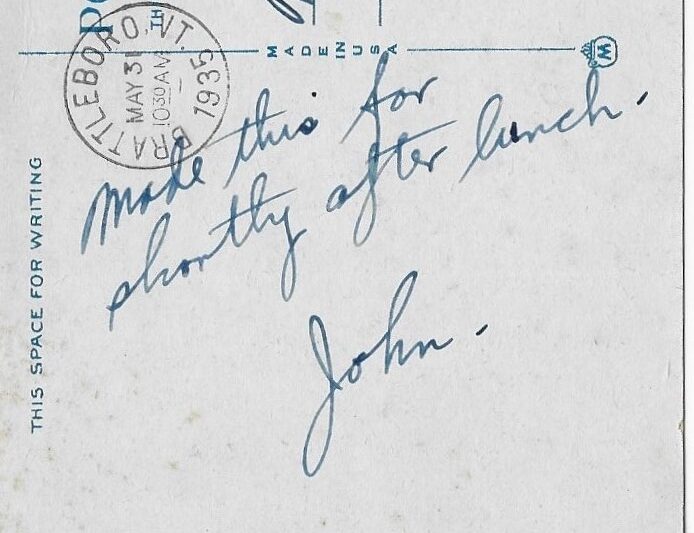 Po
TH
BRATTLEBORO, VT.
MAY 31
1030 AM
1935
MADE IN USA
W
THIS SPACE FOR WRITING
Made this far
shortly after lunch.
John.